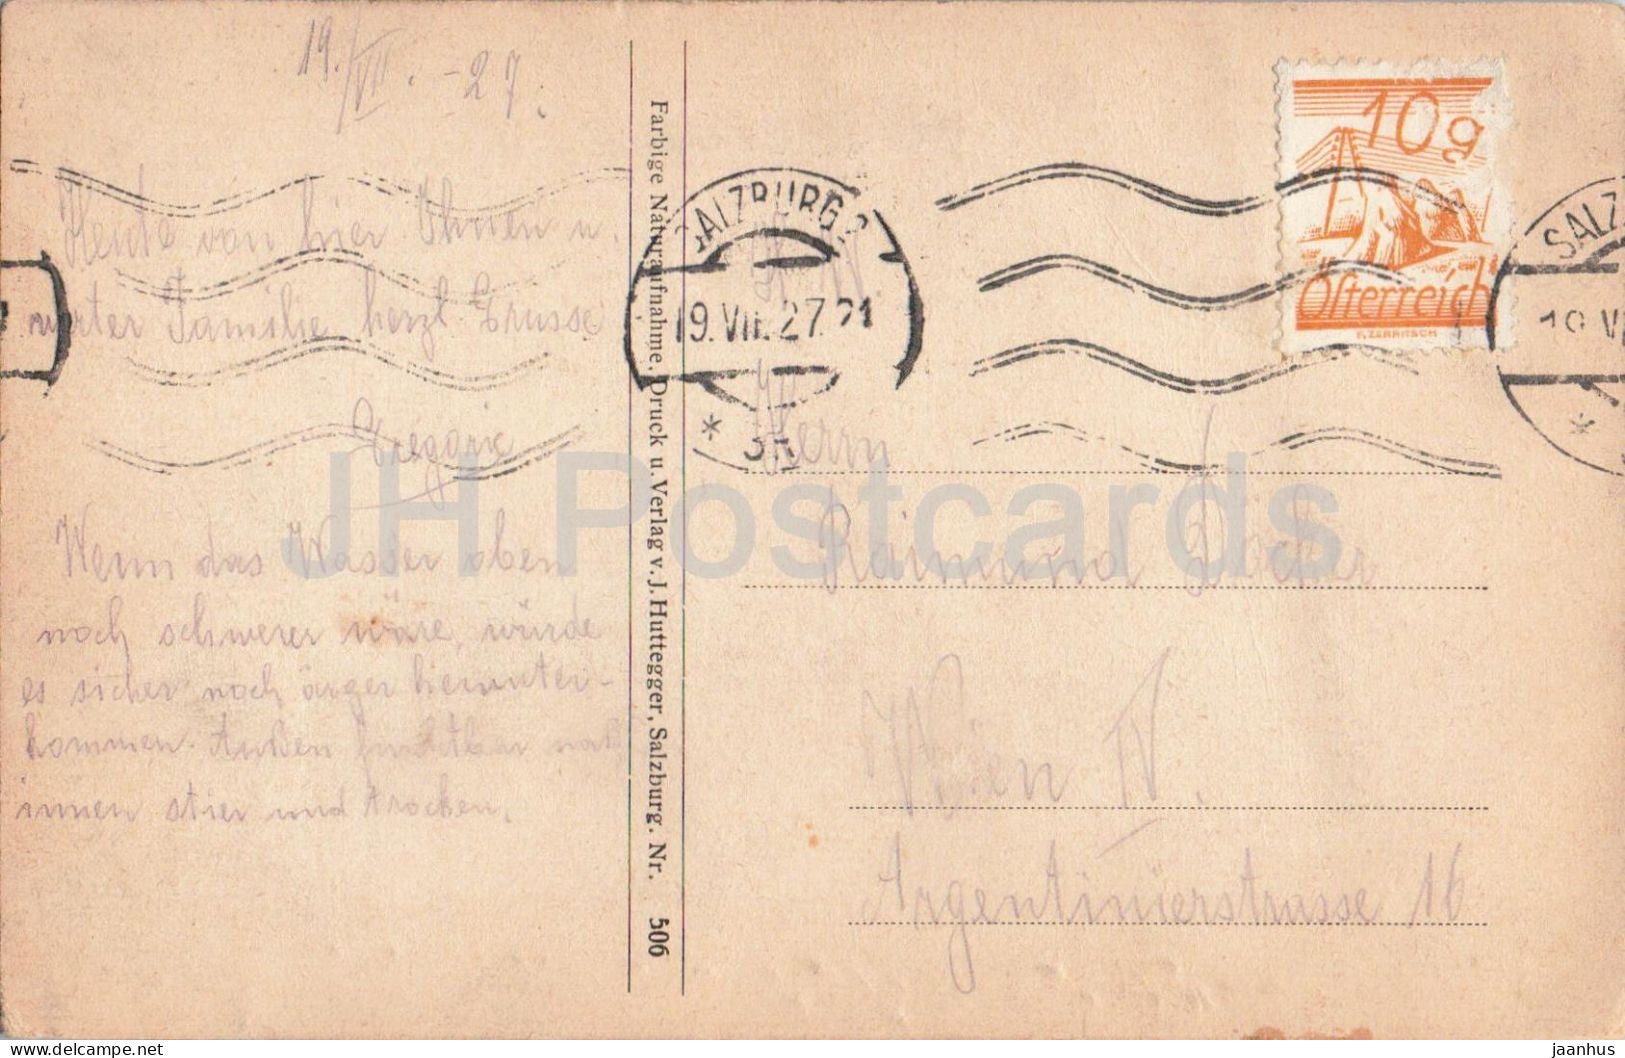 19./VII. -27.
Heute von hier Ihnen u.
werter Familie herzl. Grüsse
Gregorie
Wenn das Wasser oben
noch schwerer wäre, würde
es sicher noch ärger herunter-
kommen. Außen furchtbar naß
innen stier und trocken.
Farbige Naturaufnahme. Druck u. Verlag v. J. Huttegger, Salzburg. Nr. 506
SALZBURG 2
19.VII.27.21
*
10g
Österreich
SALZ
19.VI
*
Herrn
Raimund
Wien IV.
Argentinierstrasse 16
JH Postcards
jaanhus